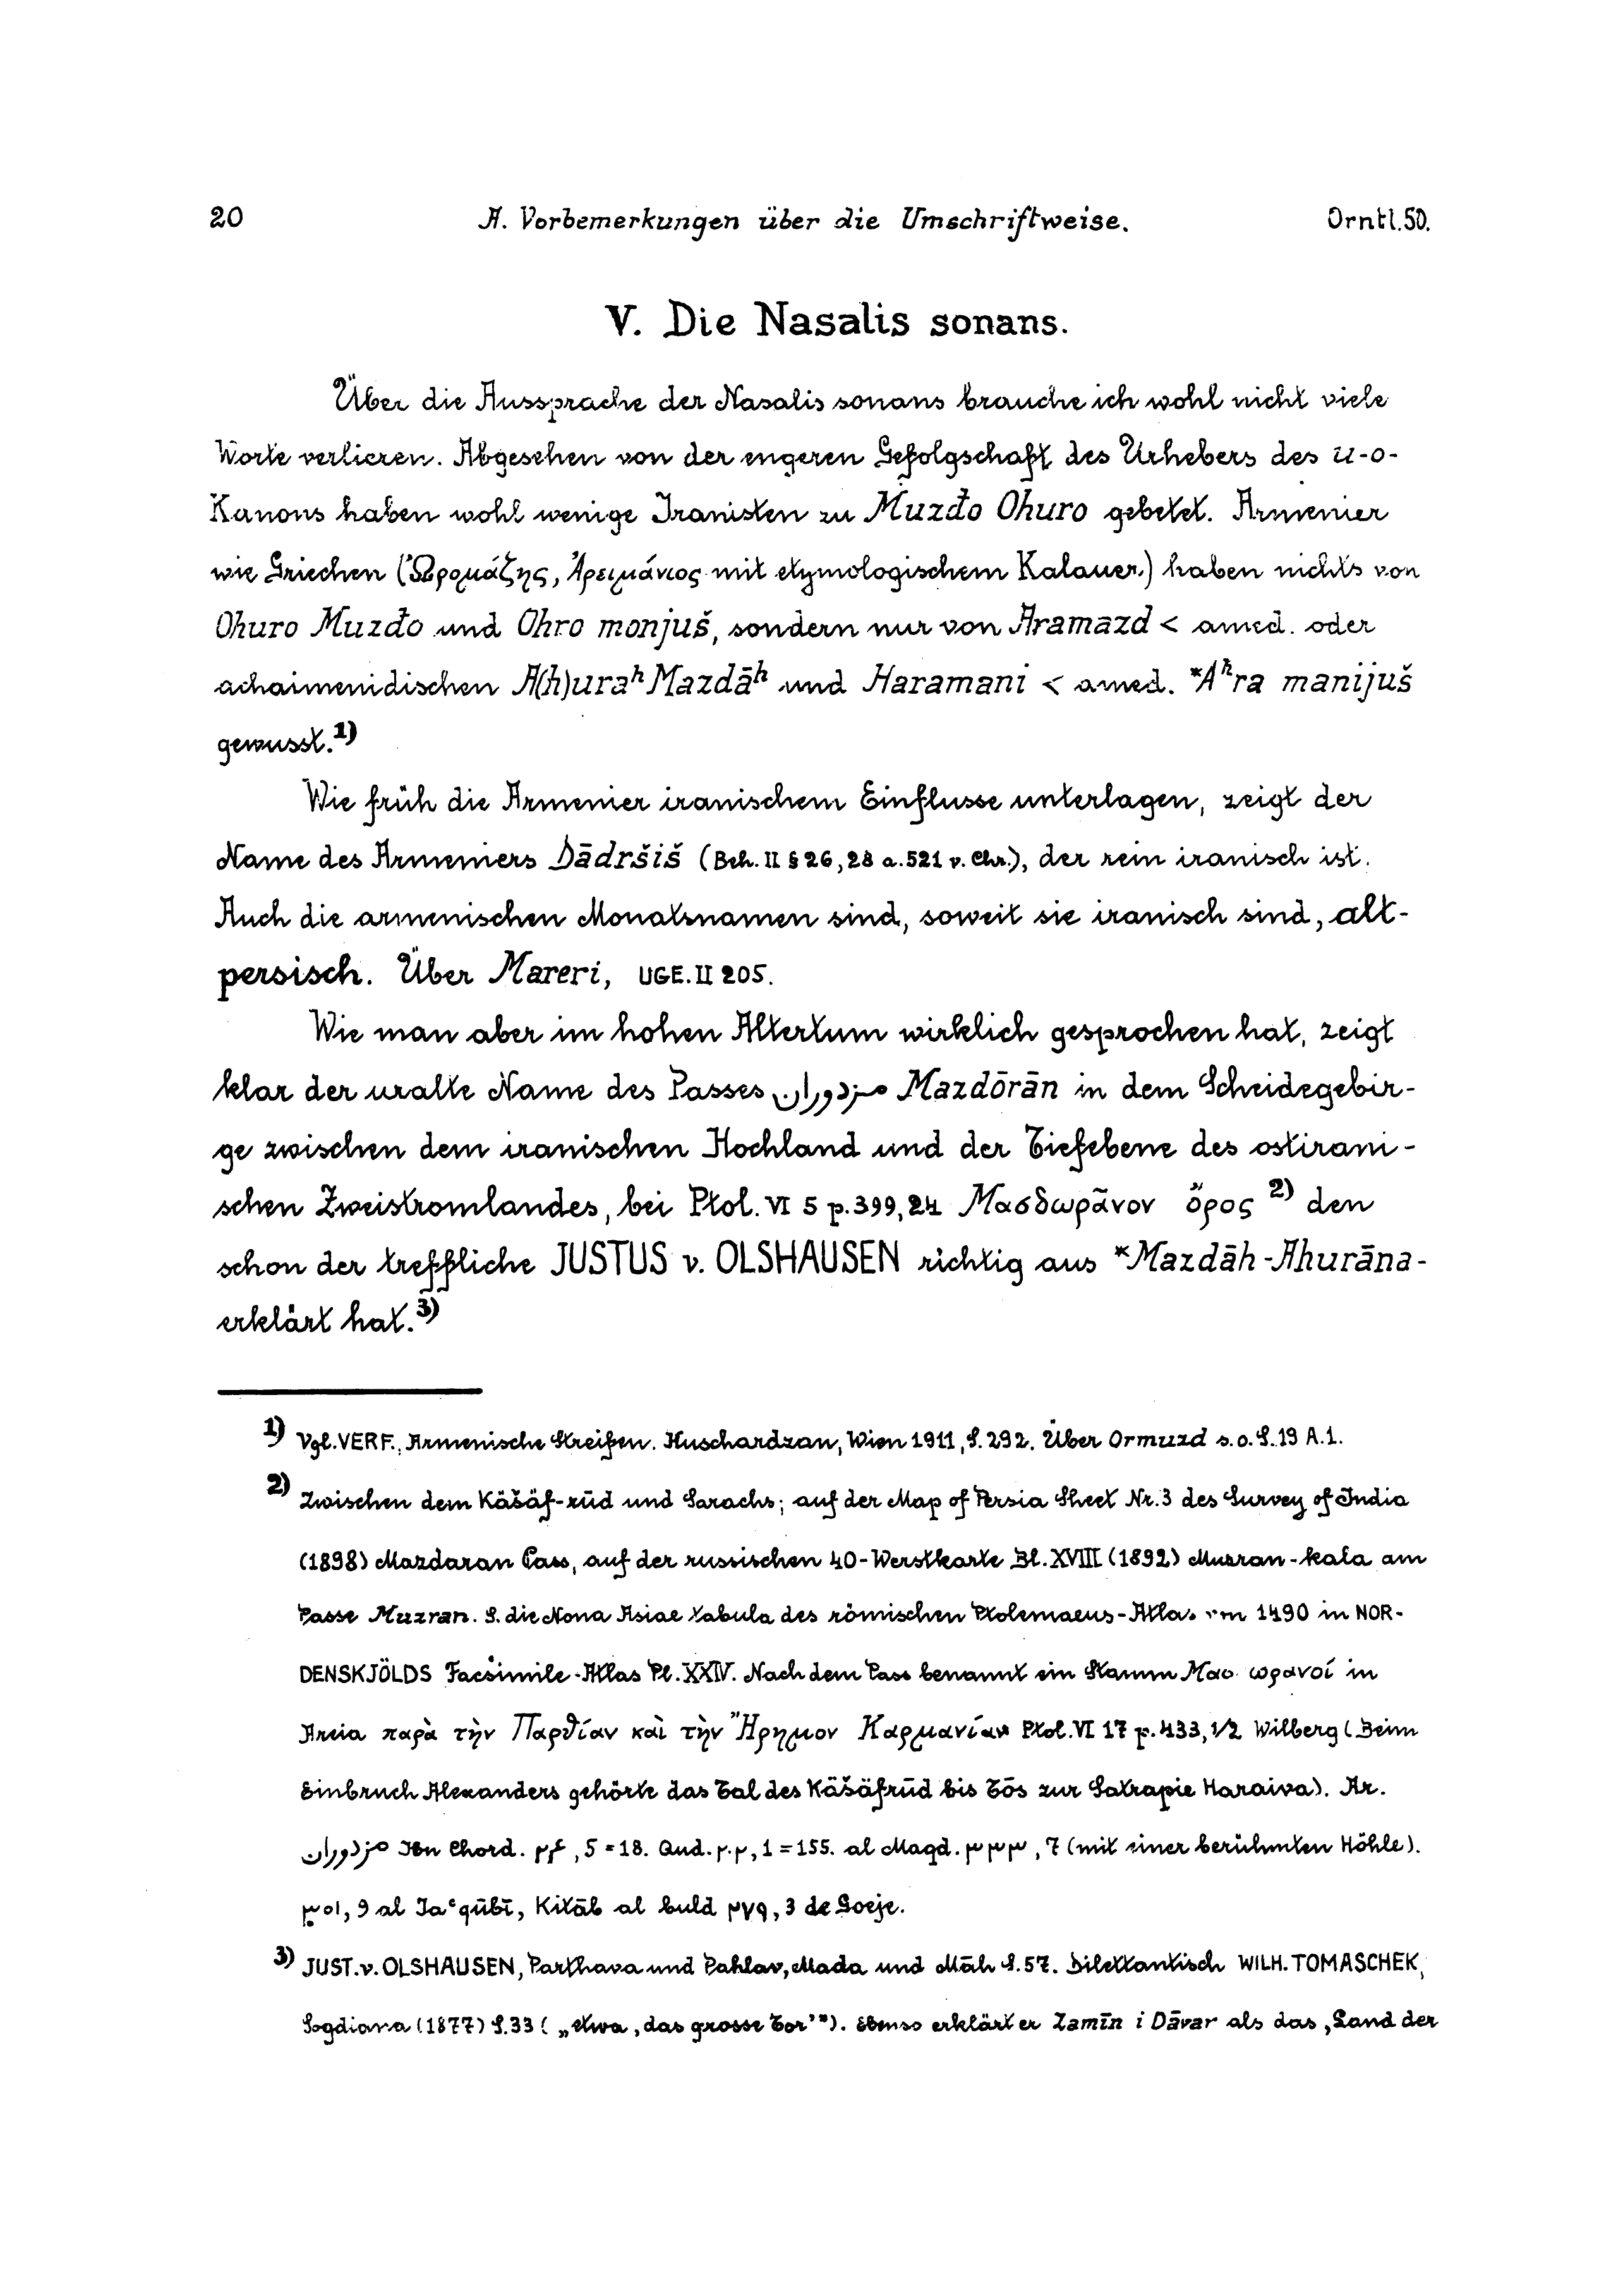 20 A. Vorbemerkungen über die Umschriftweise. Orntl.50.
V. Die Nasalis sonans.
Über die Aussprache der Nasalis sonans brauche ich wohl nicht viele
Worte verlieren. Abgesehen von der engeren Gefolgschaft des Urhebers des u-o-
Kanons haben wohl wenige Iranisten zu Muzđo Ohuro gebetet. Armenier
wie Griechen (Ὠρομάζης, Ἀρειμάνιος mit etymologischem Kalauer.) haben nichts von
Ohuro Muzđo und Ohro monjuš, sondern nur von Aramazd < amed. oder
achaimenidischen A(h)uraʰ Mazdāʰ und Haramani < amed. *Aʰra manijuš
gewusst.1)
Wie früh die Armenier iranischem Einflusse unterlagen, zeigt der
Name des Armeniers Dādršiš (Beh. II § 26, 28 a. 521 v. Chr.), der rein iranisch ist.
Auch die armenischen Monatsnamen sind, soweit sie iranisch sind, alt-
persisch. Über Mareri, UGE. II 205.
Wie man aber im hohen Altertum wirklich gesprochen hat, zeigt
klar der uralte Name des Passes مزدوران Mazdōrān in dem Scheidegebir-
ge zwischen dem iranischen Hochland und der Tiefebene des ostirani-
schen Zweistromlandes, bei Ptol. VI 5 p. 399,24 Μασδωρᾶνον ὄρος 2) den
schon der treffliche JUSTUS v. OLSHAUSEN richtig aus *Mazdāh-Ahurāna-
erklärt hat.3)
1) Vgl. VERF., Armenische Streifen. Huschardzan, Wien 1911, S. 292. Über Ormuzd s. o. S. 19 A. 1.
2) Zwischen dem Käšäf-rūd und Sarachs; auf der Map of Persia Sheet Nr. 3 des Survey of India
(1898) Mazdaran Pass, auf der russischen 40-Werstkarte Bl. XVIII (1892) Muzran-kala am
Passe Muzran. S. die Nona Asiae tabula des römischen Ptolemaeus-Atlas von 1490 in NOR-
DENSKJÖLDS Facsimile-Atlas Pl. XXIV. Nach dem Pass benannt ein Stamm in
Areia παρὰ τὴν Παρθίαν καὶ τὴν Ἤρημον Καρμανίαν Ptol. VI 17 p. 433, 1/2 Wilberg (Beim
Einbruch Alexanders gehörte das Tal des Käšäfrūd bis Tōs zur Satrapie Haraiva). Ar.
مزدوران Ibn Chord. ٢٤, 5 = 18. Qud. ٢٠٢, 1 = 155. al Maqd. ٣٣٣, 7 (mit einer berühmten Höhle).
٣٥١, 9 al Jaʿqūbī, Kitāb al buld ٢٧٩, 3 de Goeje.
3) JUST. v. OLSHAUSEN, Parthava und Pahlav, Mada und Māh S. 57. Dilettantisch WILH. TOMASCHEK,
Sogdiana (1877) S. 33 („etwa ‚das grosse Tor'"). Ebenso erklärt er Zamīn i Dāvar als das ‚Land der